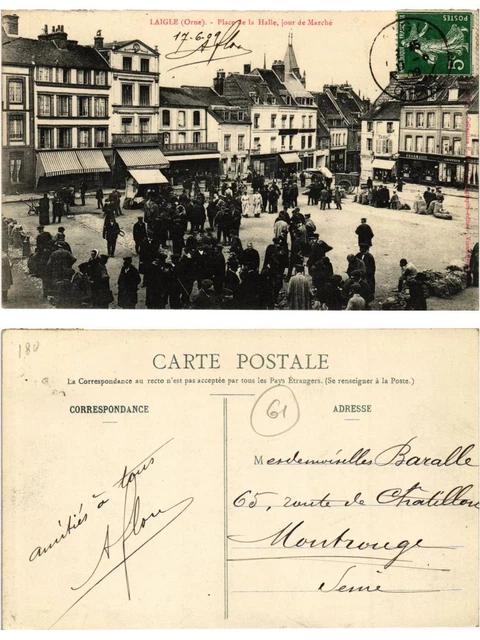 LAIGLE (Orne). - Place de la Halle, jour de Marché
POSTES
5
180
CARTE POSTALE
La Correspondance au recto n'est pas acceptée par tous les Pays Étrangers. (Se renseigner à la Poste.)
CORRESPONDANCE
amitiés à tous
61
ADRESSE
Mesdemoiselles Baralle
65, route de Chatillon
Montrouge
Seine